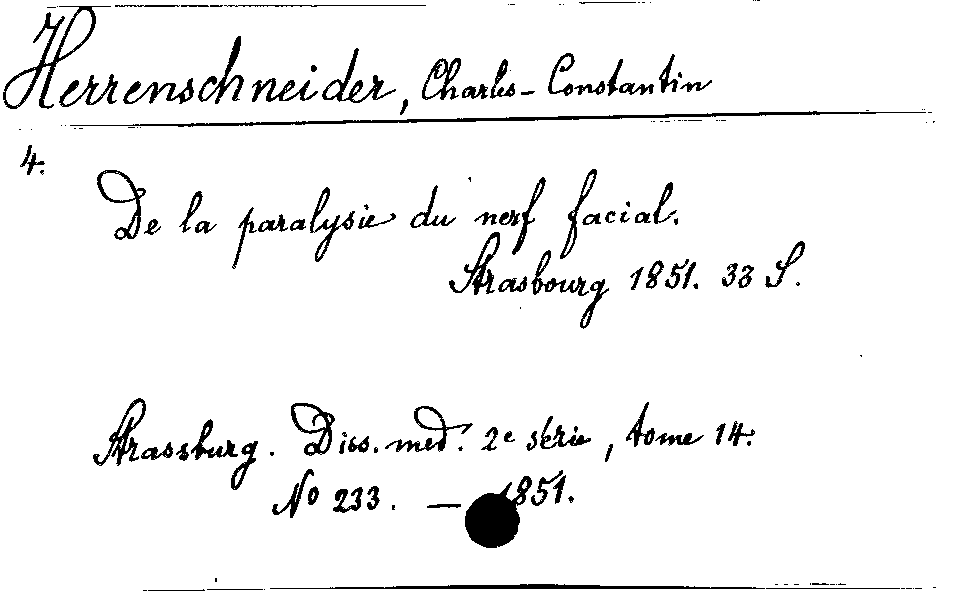 Herrenschneider, Charles-Constantin
4.
De la paralysie du nerf facial.
Strasbourg 1851. 33 S.
Strassburg. Diss. med. 2e série, tome 14.
No 233. — 1851.